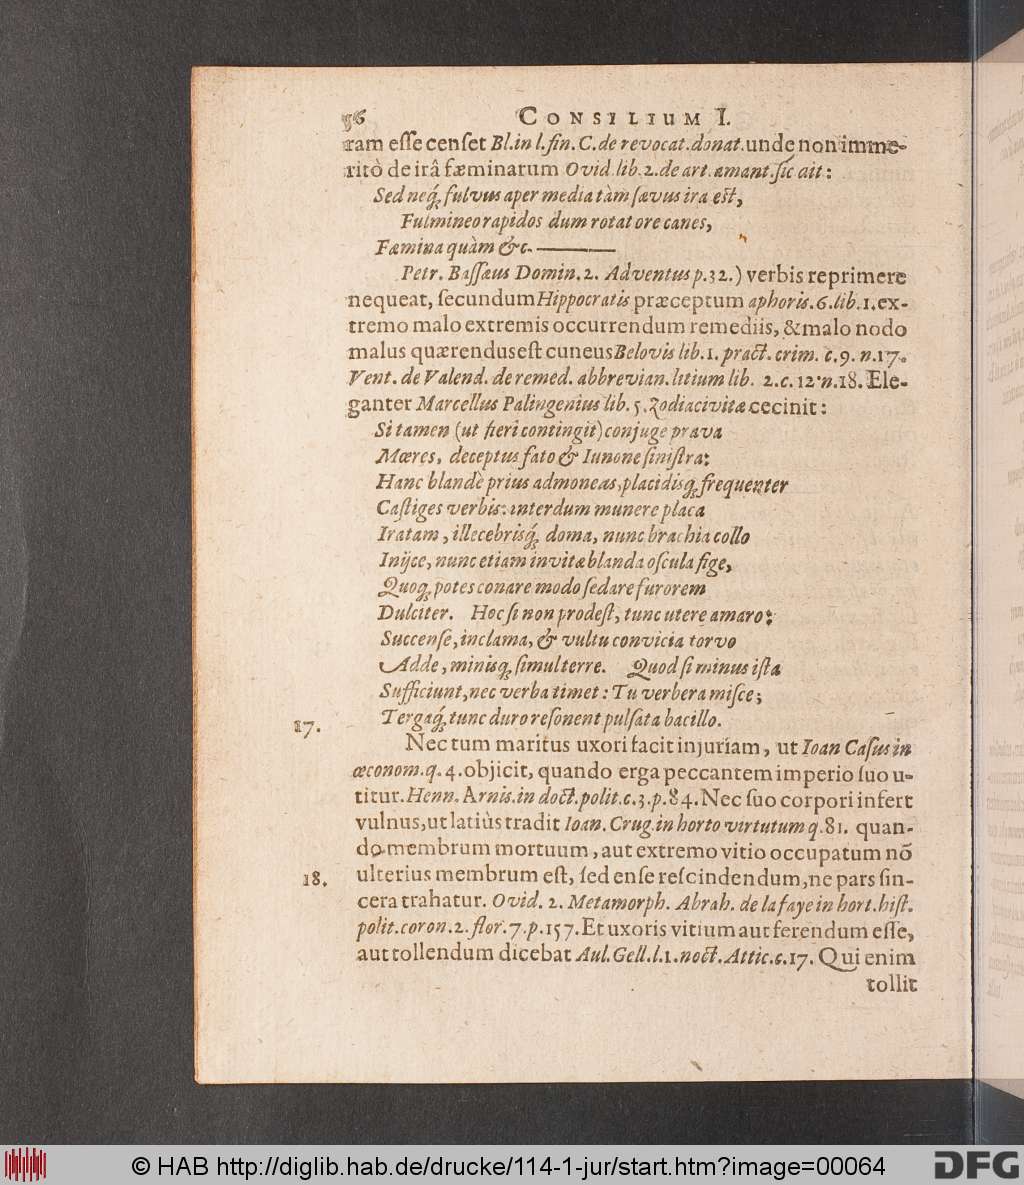 56 CONSILIUM I.
ram esse censet Bl. in l. fin. C. de revocat. donat. unde non imme-
ritò de irâ fæminarum Ovid. lib. 2. de art. amant. sic ait:
Sed neq́; fulvus aper media tàm sævus ira est,
Fulmineo rapidos dum rotat ore canes,
Fæmina quàm &c. ———
Petr. Bassæus Domin. 2. Adventus p. 32.) verbis reprimere
nequeat, secundum Hippocratis præceptum aphoris. 6. lib. 1. ex-
tremo malo extremis occurrendum remediis, & malo nodo
malus quærendus est cuneus Belovis lib. 1. pract. crim. c. 9. n. 17.
Vent. de Valend. de remed. abbrevian. litium lib. 2. c. 12. n. 18. Ele-
ganter Marcellus Palingenius lib. 5. Zodiaci vitæ cecinit:
Si tamen (ut fieri contingit) conjuge prava
Mœres, deceptus fato & Iunone sinistra:
Hanc blandè prius admoneas, placidisq́; frequenter
Castiges verbis: interdum munere placa
Iratam, illecebrisq́; doma, nunc brachia collo
Inijce, nunc etiam invitæ blanda oscula fige,
Quoq́; potes conare modo sedare furorem
Dulciter. Hoc si non prodest, tunc utere amaro:
Succense, inclama, & vultu convicia torvo
Adde, minisq́; simul terre. Quod si minus ista
Sufficiunt, nec verba timet: Tu verbera misce;
Tergaq́; tunc duro resonent pulsata bacillo.
17. Nec tum maritus uxori facit injuriam, ut Ioan Casus in
œconom. q. 4. objicit, quando erga peccantem imperio suo u-
titur. Henn. Arnis. in doct. polit. c. 3. p. 84. Nec suo corpori infert
vulnus, ut latiùs tradit Ioan. Crug. in horto virtutum q. 81. quan-
do membrum mortuum, aut extremo vitio occupatum nō
18. ulterius membrum est, sed ense rescindendum, ne pars sin-
cera trahatur. Ovid. 2. Metamorph. Abrah. de la faye in hort. hist.
polit. coron. 2. flor. 7. p. 157. Et uxoris vitium aut ferendum esse,
aut tollendum dicebat Aul. Gell. l. 1. noct. Attic. c. 17. Qui enim
tollit
© HAB http://diglib.hab.de/drucke/114-1-jur/start.htm?image=00064
DFG